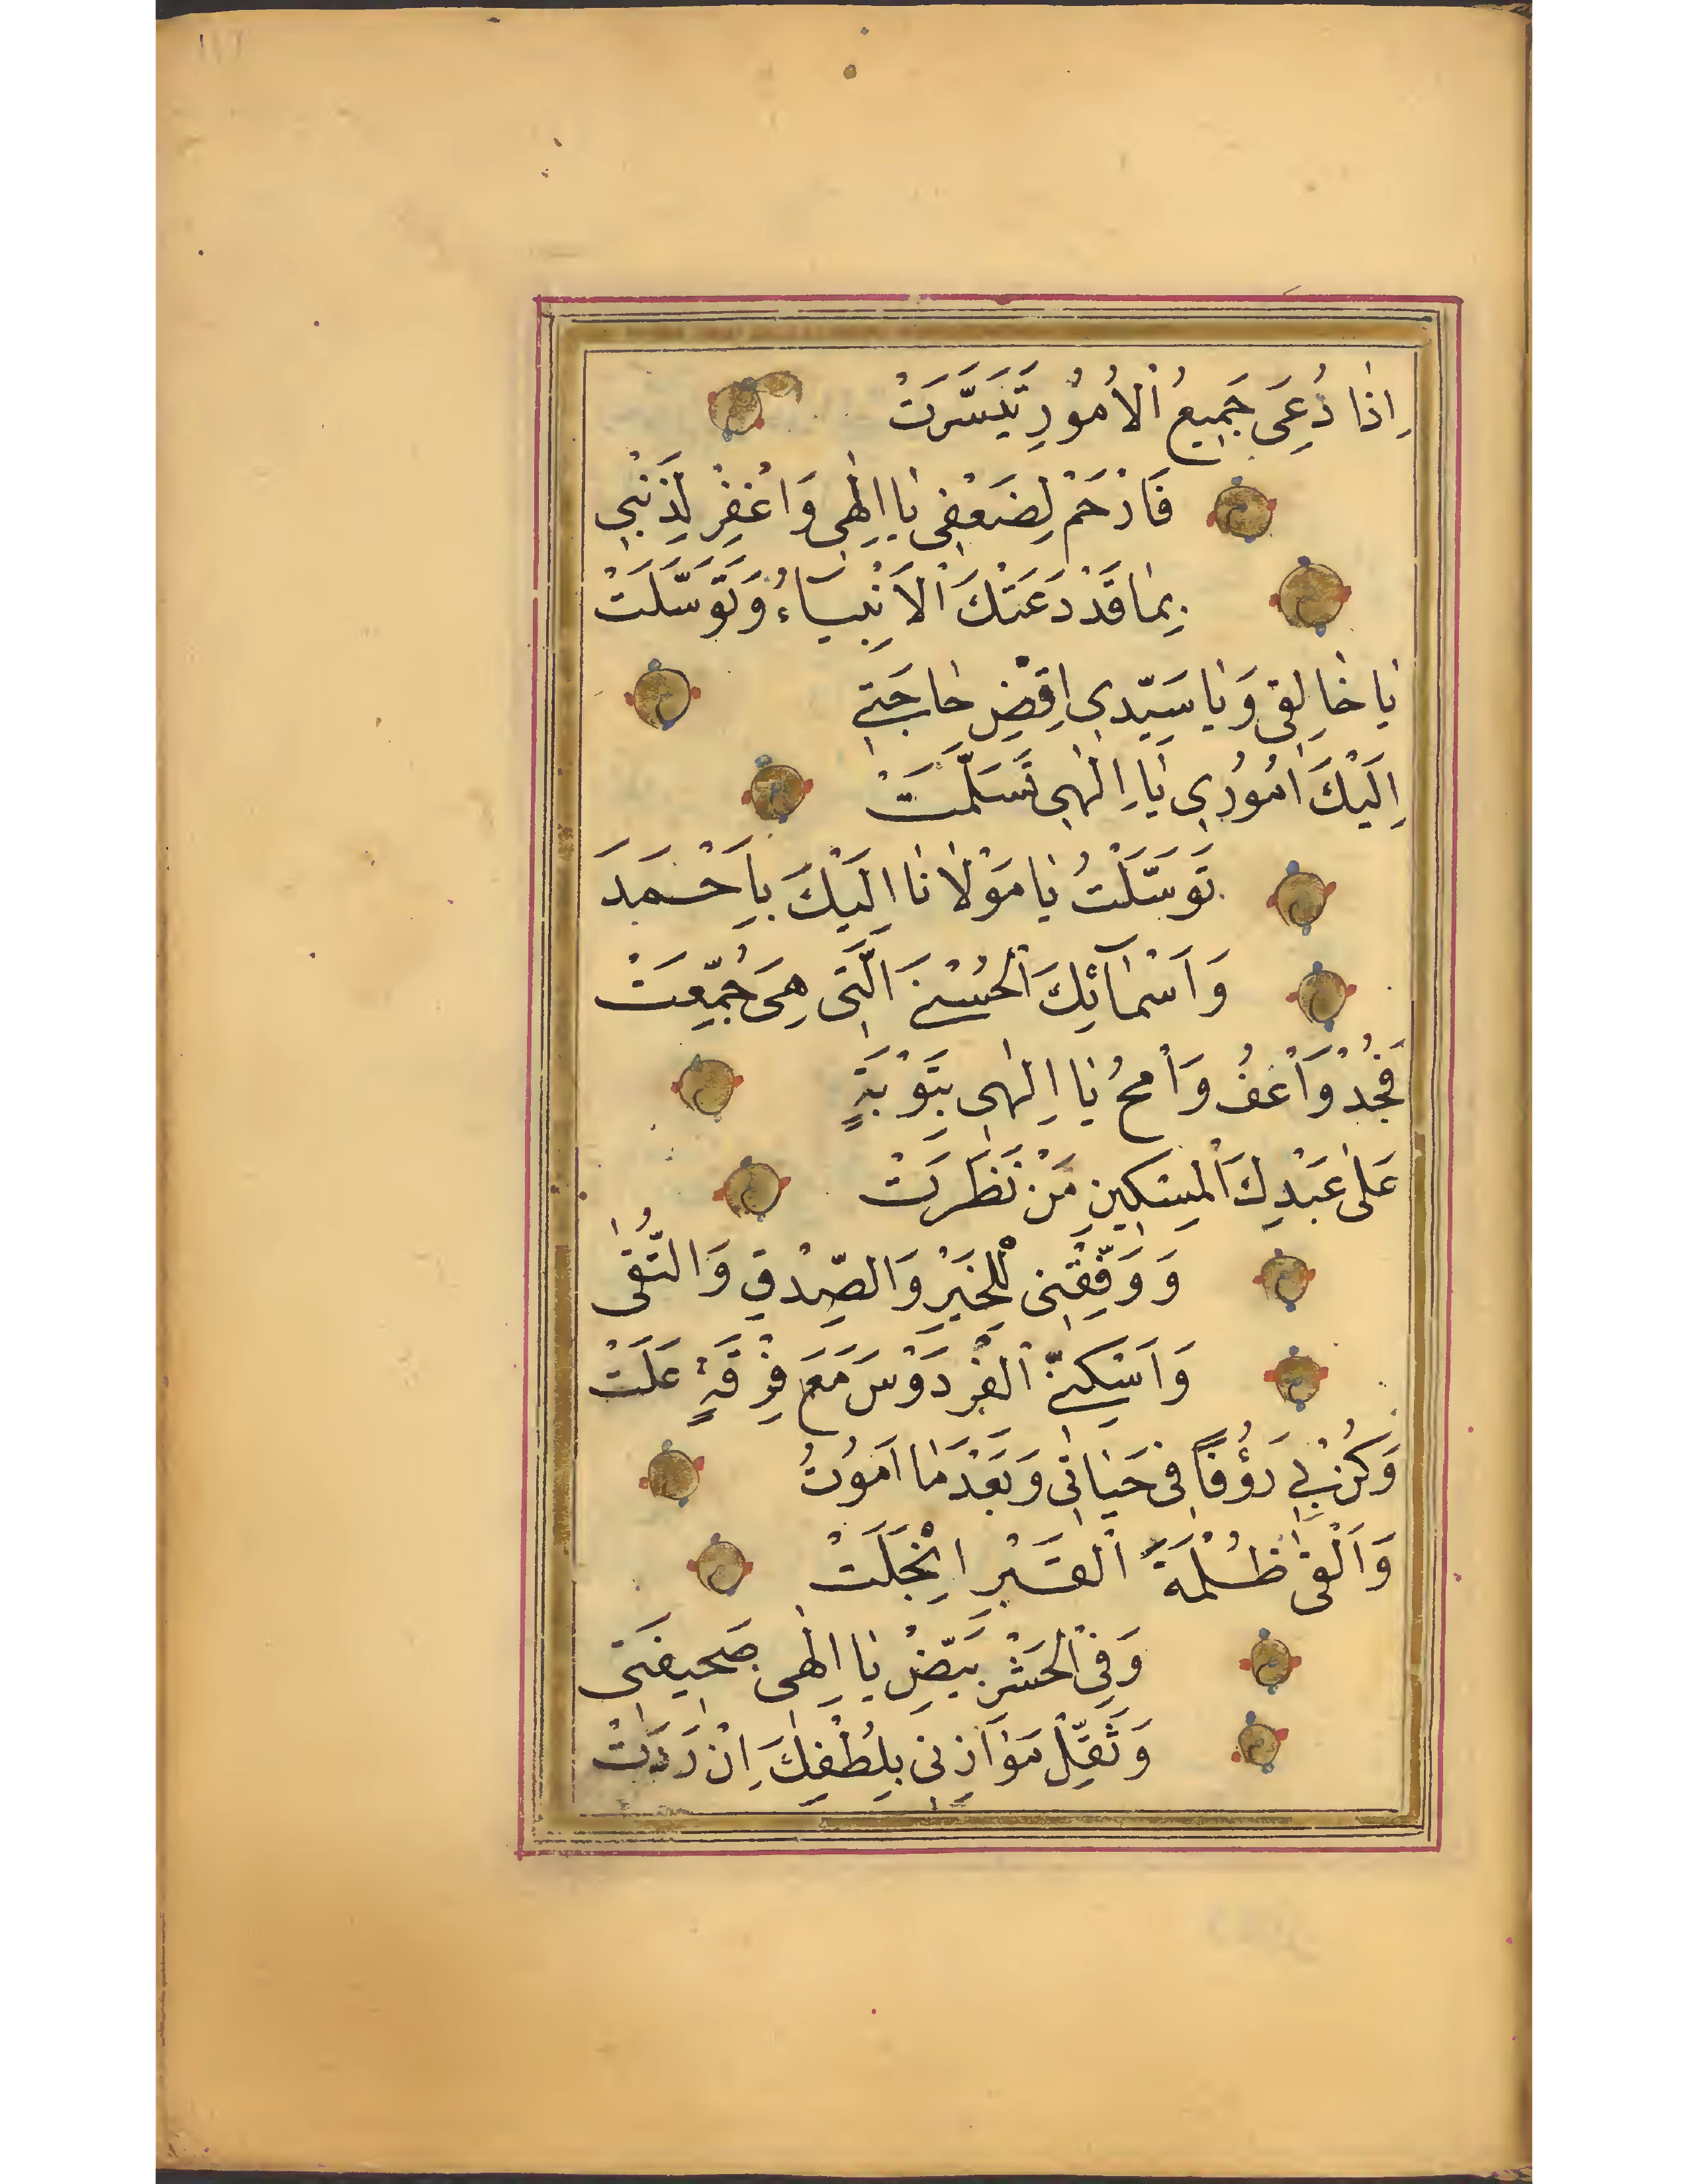 اِذَا دُعِيَ جَمِيعُ الْاُمُورِ تَيَسَّرَتْ
فَارْحَمْ لِضَعْفِي يَا اِلٰهِي وَاغْفِرْ لِذَنْبِي
بِمَا قَدْ دَعَتْكَ الْاَنْبِيَاءُ وَتَوَسَّلَتْ
يَا خَالِقِي وَيَا سَيِّدِي اِقْضِ حَاجَتِي
اِلَيْكَ اُمُورِي يَا اِلٰهِي تَسَلَّمَتْ
تَوَسَّلْتُ يَا مَوْلَانَا اِلَيْكَ بِاَحْمَدَ
وَاَسْمَآئِكَ الْحُسْنَى الَّتِي هِيَ جُمِّعَتْ
فَجُدْ وَاعْفُ وَامْحُ يَا اِلٰهِي بِتَوْبَةٍ
عَلَى عَبْدِكَ الْمِسْكِينِ مَنْ نَظَرَتْ
وَوَفِّقْنِي لِلْخَيْرِ وَالصِّدْقِ وَالتُّقَى
وَاَسْكِنِّي الْفِرْدَوْسَ مَعَ فِرْقَةٍ عَلَتْ
وَكُنْ لِي رَؤُفًا فِي حَيَاتِي وَبَعْدَمَا اَمُوتُ
وَاَلْقَى ظُلْمَةَ الْقَبْرِ انْجَلَتْ
وَفِي الْحَشْرِ بَيِّضْ يَا اِلٰهِي صَحِيفَتِي
وَثَقِّلْ مَوَازِنِي بِلُطْفِكَ اِنْ رَدَتْ